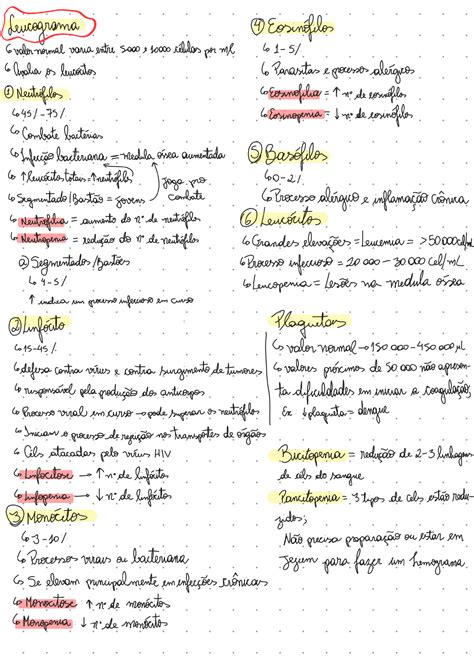 Leucograma
↳ valor normal varia entre 5000 e 10000 células por ml
↳ Avalia os leucócitos
① Neutrófilos
↳ 45/-75/
↳ Combate bactérias
↳ Infecção bacteriana = medula óssea aumentada
↳ ↑leucócitos totais ↑neutrófils
↳ Segmentado/Bastão = jovens
joga pro combate
↳ Neutrofilia = aumento do nº de neutrófilos
↳ Neutropenia = redução do nº de neutrófilos
② Segmentados/Bastões
↳ 4-5/
↑ indica um processo infeccioso em curso
② Linfócito
↳ 15-45/
↳ defesa contra vírus e contra surgimento de tumores
↳ responsável pela produção dos anticorpos
↳ Processo viral em curso → pode superar os neutrófilos
↳ Iniciam o processo de rejeição nos transportes de órgãos
↳ Céls atacadas pelo vírus HIV
↳ Linfocitose → ↑ nº de linfócitos
↳ Linfopenia → ↓ nº de linfócitos
③ Monócitos
↳ 3-10/
↳ Processos virais ou bacteriana
↳ Se elevam principalmente em infecções crônicas
↳ Monocitose ↑ nº de monócitos
↳ Monopenia ↓ nº de monócitos
④ Eosinófilos
↳ 1-5/
↳ Parasitas e processos alérgicos
↳ Eosinofilia = ↑ nº de eosinófilos
↳ Eosinopenia = ↓ nº de eosinófilos
⑤ Basófilos
↳ 0-2/
↳ Processo alérgico e inflamação crônica
⑥ Leucócitos
↳ Grandes elevações = Leucemia = >50000cel/ml
↳ Processo infeccioso = 20 000 - 30 000 cel/ml
↳ Leucopenia = Lesões na medula óssea
Plaquetas
↳ valor normal → 150 000 - 450 000 μl
↳ valores próximos de 50 000 não apresenta
dificuldades em iniciar a coagulação;
Ex ↓ plaqueta = dengue
Bicitopenia = redução de 2-3 linhagens
de céls do sangue
Pancitopenia = 3 tipos de céls estão redu-
zidos;
Não precisa preparação ou estar em
jejum para fazer um hemograma.